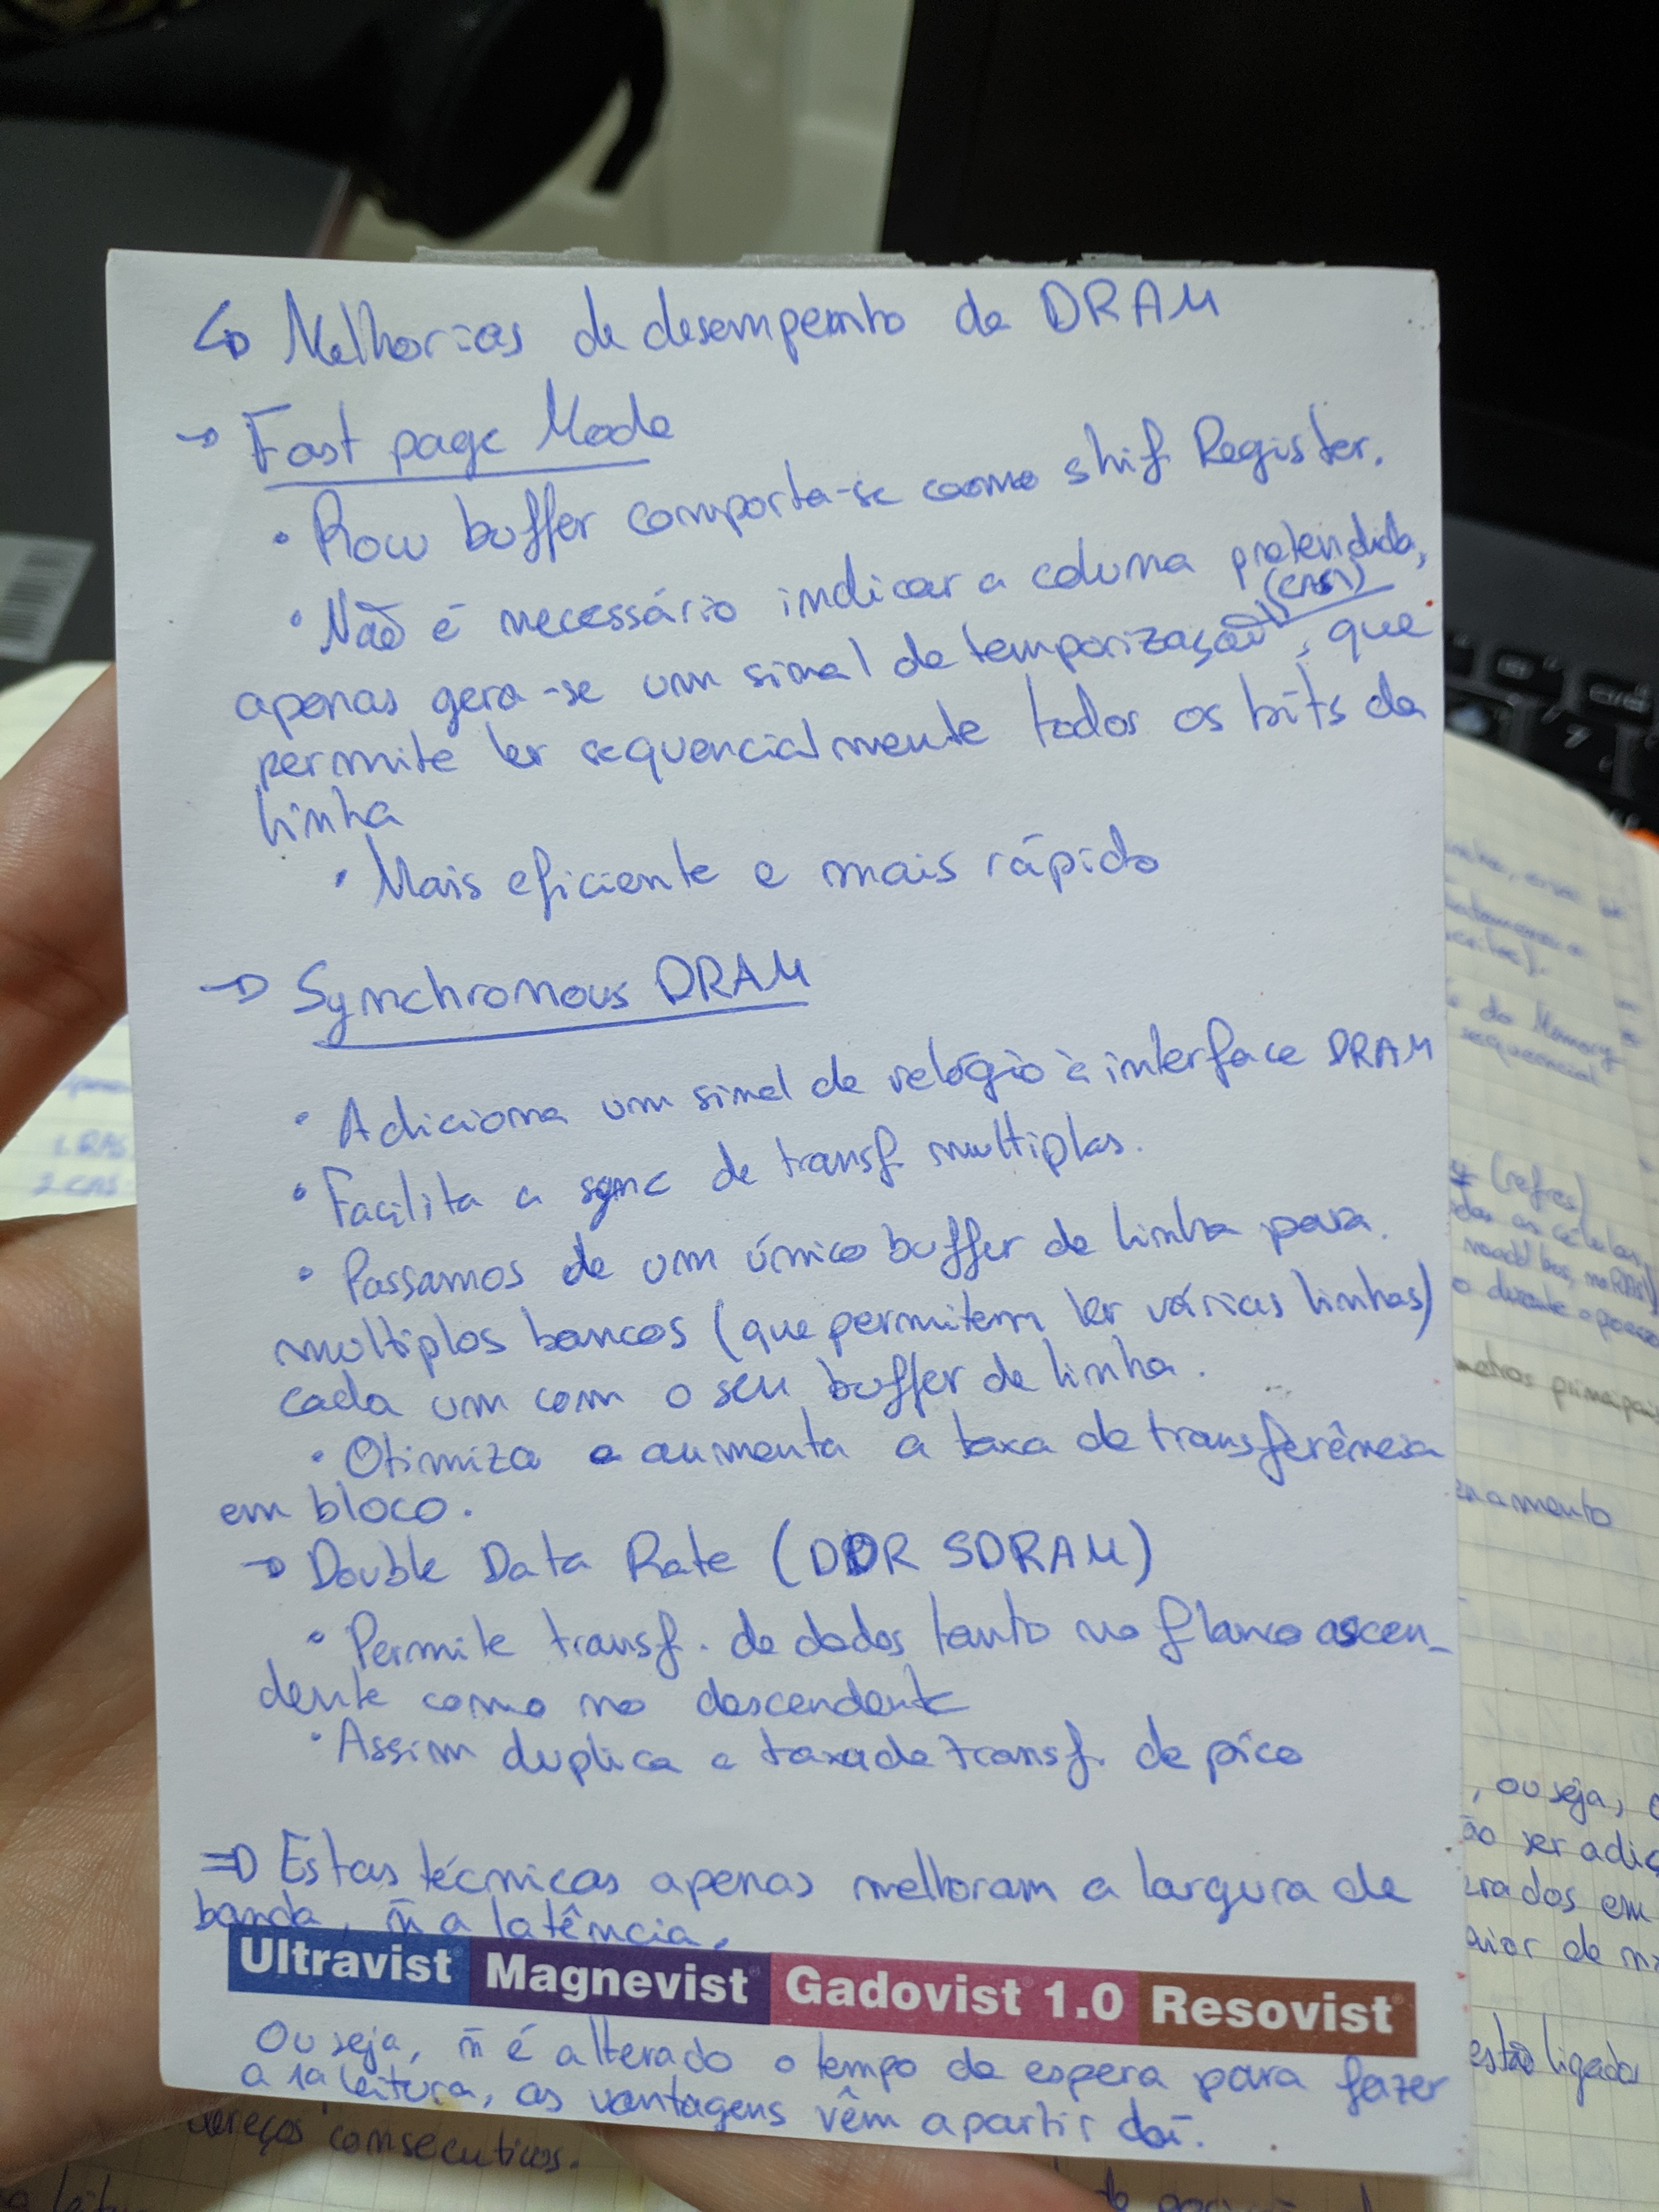 ↳ Melhorias de desempenho da DRAM
→ Fast page Mode
• Row buffer comporta-se como shif Register.
• Não é necessário indicar a coluna pretendida,
apenas gera-se um sinal de temporização (CAS), que
permite ler sequencialmente todos os bits da
linha
• Mais eficiente e mais rápido
→ Synchronous DRAM
• Adiciona um sinal de relógio à interface DRAM
• Facilita a sync de transf. multiplas.
• Passamos de um único buffer de linha para
multiplos bancos (que permitem ler várias linhas)
cada um com o seu buffer de linha.
• Otimiza e aumenta a taxa de transferência
em bloco.
→ Double Data Rate (DDR SDRAM)
• Permite transf. de dados tanto no flanco ascen-
dente como no descendente
• Assim duplica a taxa de transf. de pico
⇒ Estas técnicas apenas melhoram a largura de
banda, ñ a latência.
Ultravist® Magnevist® Gadovist® 1.0 Resovist®
Ou seja, ñ é alterado o tempo de espera para fazer
a 1a leitura, as vantagens vêm a partir daí.
do Memory
sequencial
1. RAS
2. CAS
(refres)
metros principais
enamento
, ou seja,
ão ser adiç
erados em
aior de
estão ligados
dereços consecutivos.